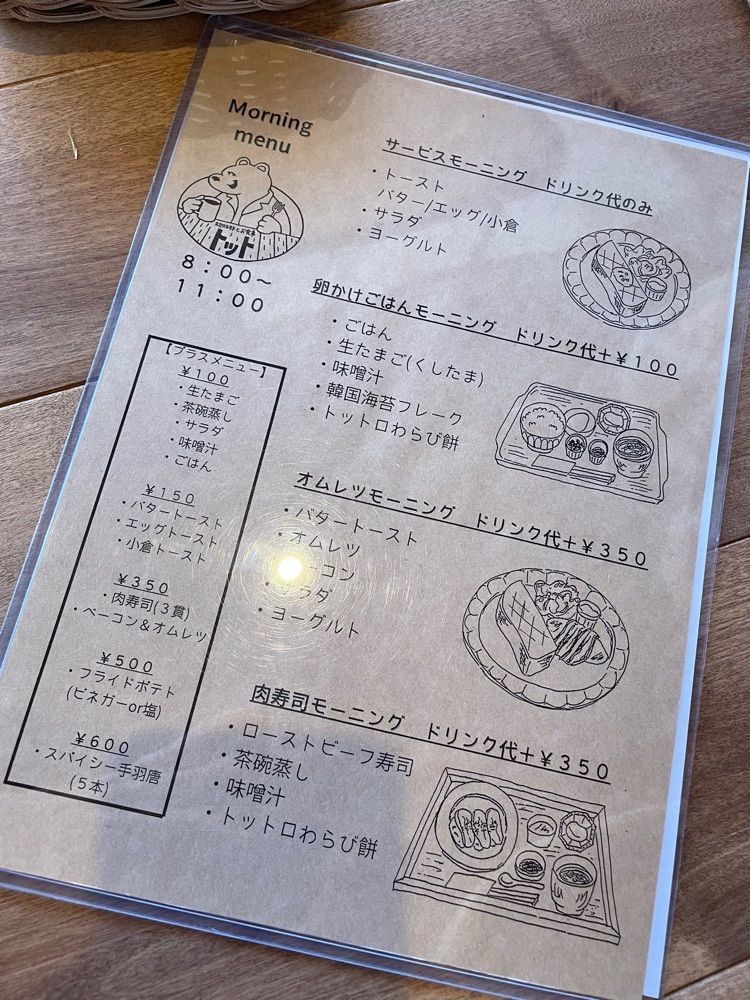 Morning
menu
トット
8：00～
11：00
サービスモーニング　ドリンク代のみ
・トースト
バター/エッグ/小倉
・サラダ
・ヨーグルト
卵かけごはんモーニング　ドリンク代＋￥100
・ごはん
・生たまご(くしたま)
・味噌汁
・韓国海苔フレーク
・トットロわらび餅
オムレツモーニング　ドリンク代＋￥350
・バタートースト
・オムレツ
ーコン
・サラダ
・ヨーグルト
肉寿司モーニング　ドリンク代＋￥350
・ローストビーフ寿司
・茶碗蒸し
・味噌汁
・トットロわらび餅
【プラスメニュー】
￥100
・生たまご
・茶碗蒸し
・サラダ
・味噌汁
・ごはん
￥150
・バタートースト
・エッグトースト
・小倉トースト
￥350
・肉寿司(3貫)
・ベーコン＆オムレツ
￥500
・フライドポテト
(ビネガーor塩)
￥600
・スパイシー手羽唐
(5本)